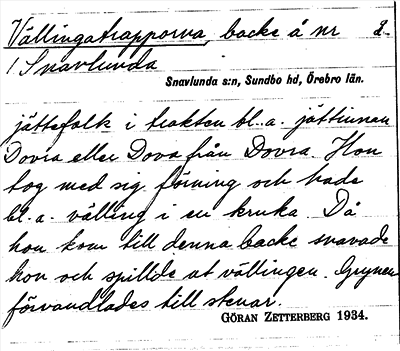 Vällingatrapporna, backe å nr 2
/ Snavlunda
Snavlunda s:n, Sundbo hd, Örebro län.
jättefolk i trakten bl.a. jättinnan
Dovra eller Dova från Dovra. Hon
tog med sig förning och hade
bl.a. välling i en kruka. Då
hon kom till denna backe snavade
hon och spillde ut vällingen. Grynen
förvandlades till stenar.
GÖRAN ZETTERBERG 1934.